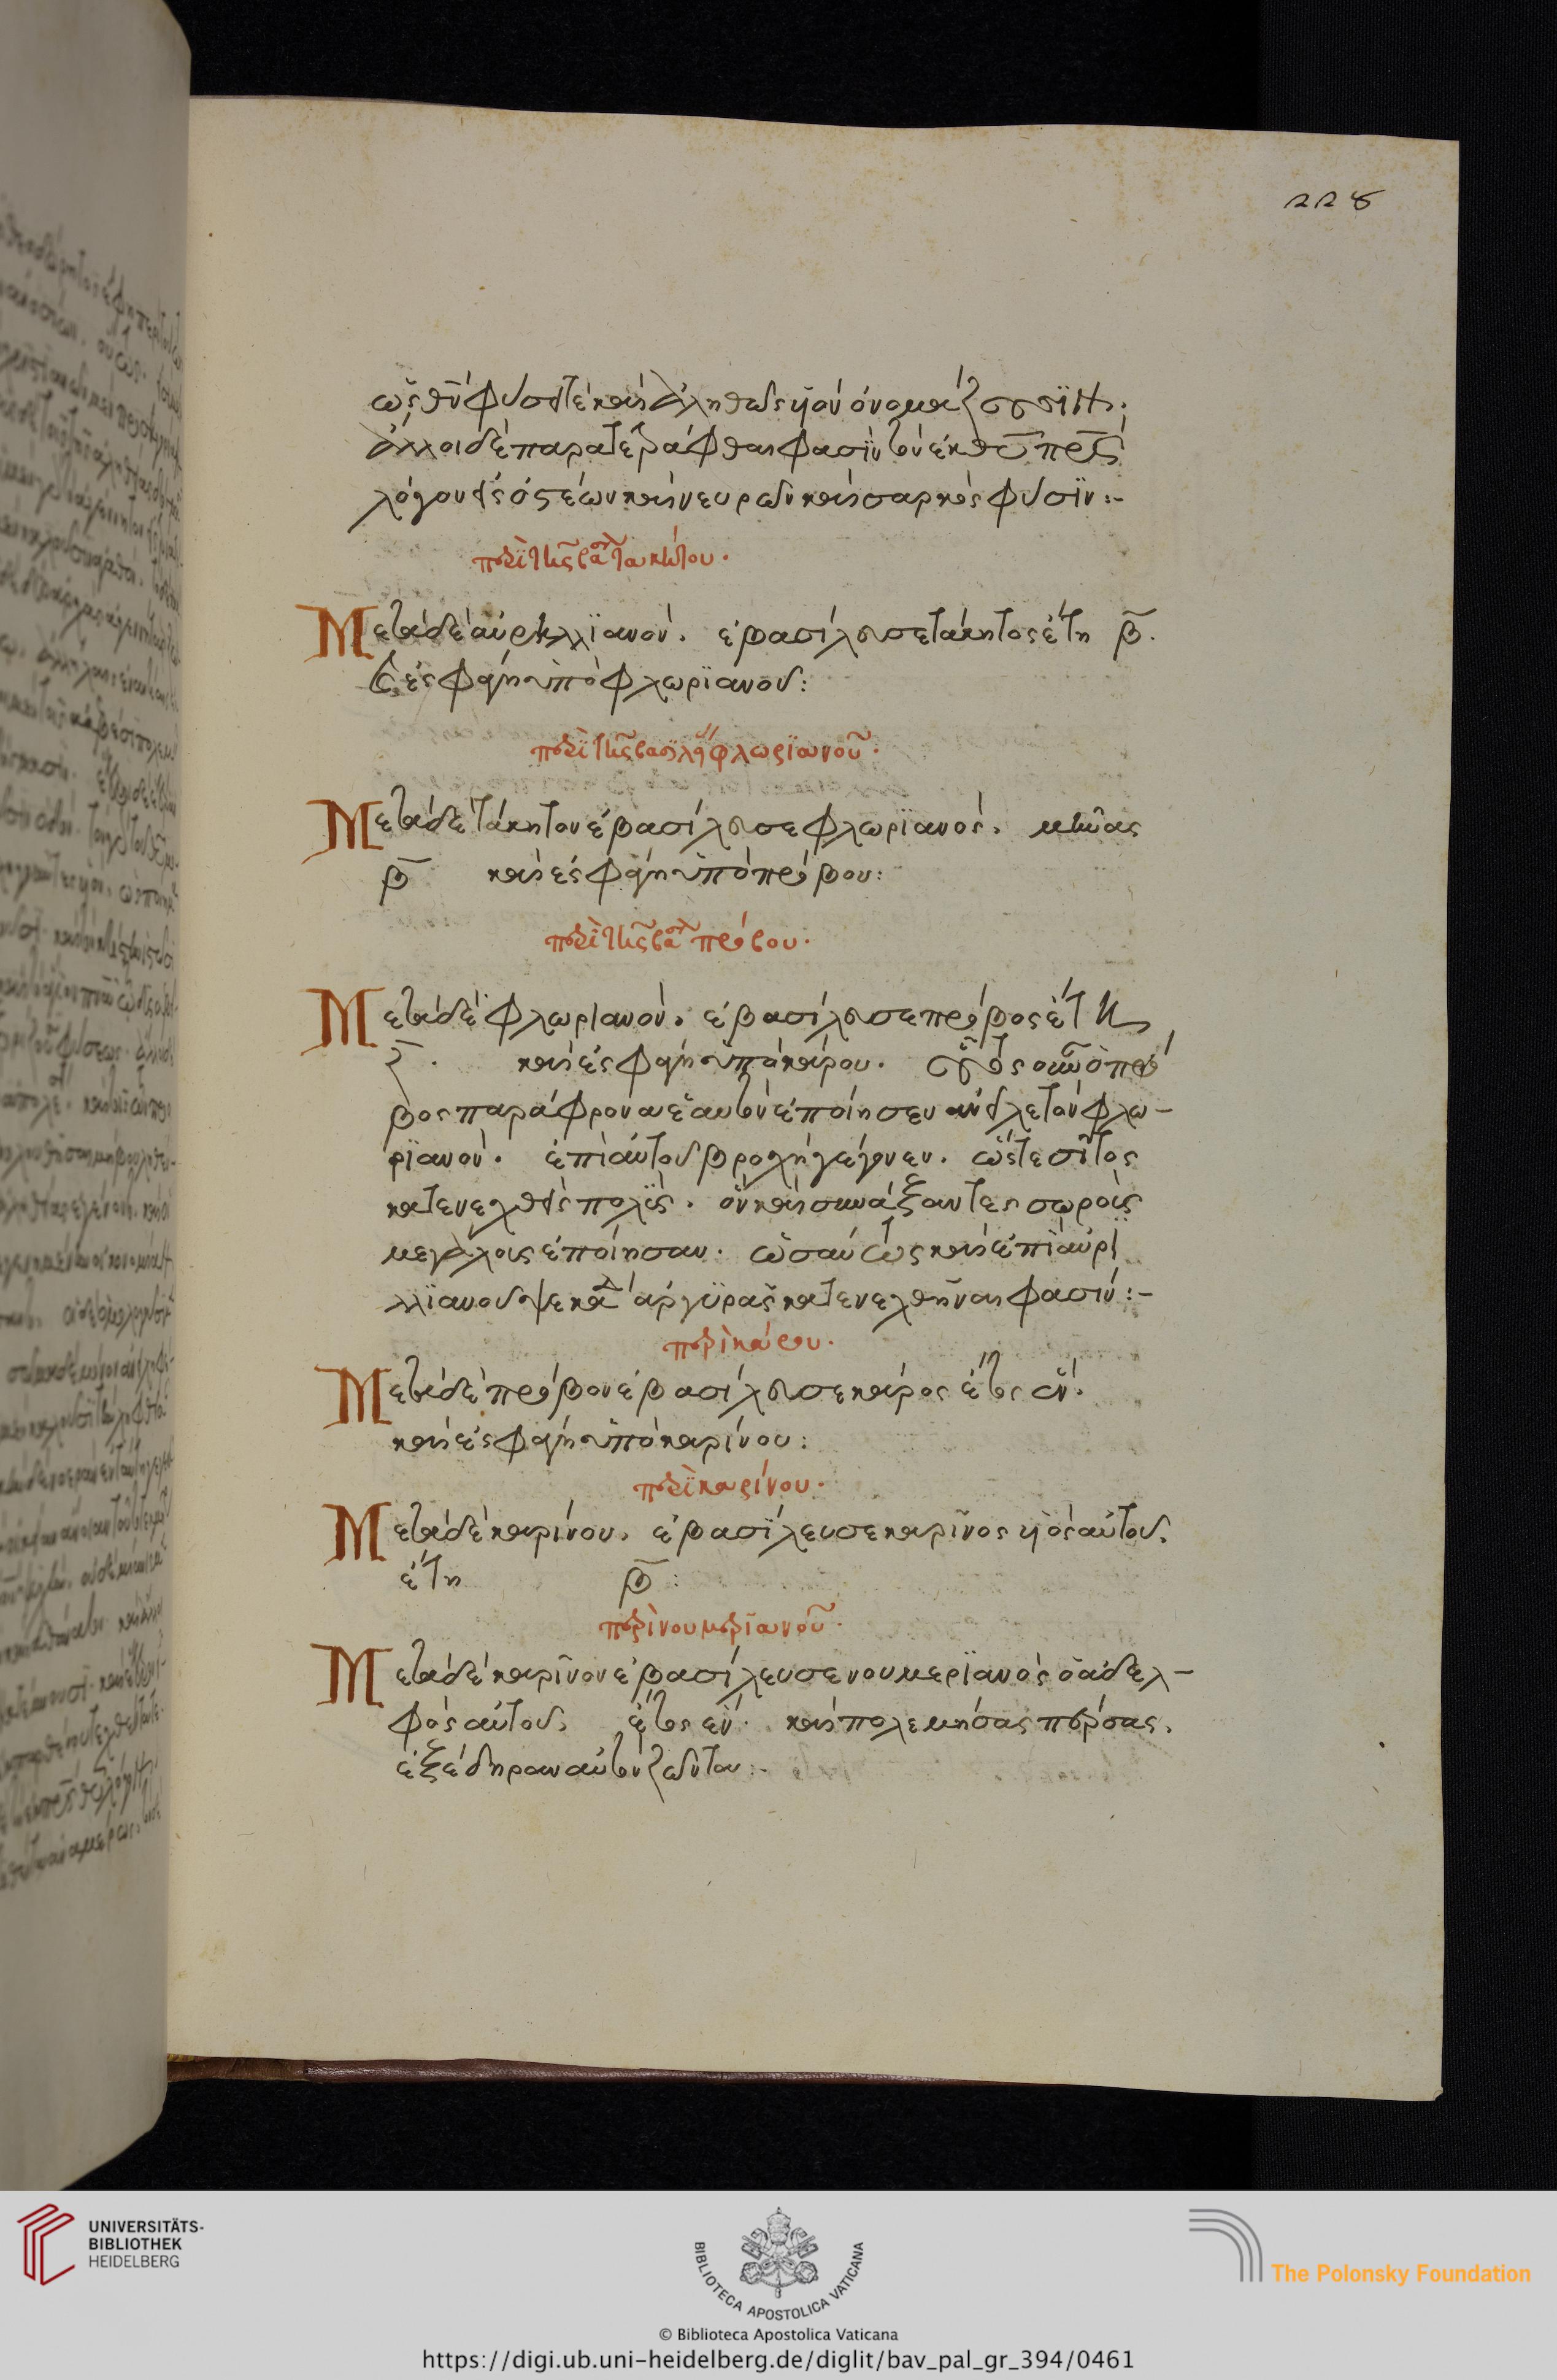 228
ὡς θῦ φύσει τὲ καὶ ἀληθῶς υἱὸν ὀνομάζουσϊν.
ἄλλοι δὲ παρατετράφθαι φασϊν τὸν ἐκ θῦ πρς
λόγον εἰς ὀστέων καὶ νευρῶν καὶ σαρκὸς φύσϊν:-
περὶ τῆς βασλ τακίτου.
Μετὰ δὲ αὐρηλλϊανὸν. ἐβασίλευσε τάκητος ἔτη β.
καὶ ἐσφάγη ὑπὸ φλωρϊανοῦ:
περὶ τῆς βασϊλεί φλωρϊανοῦ.
Μετὰ δὲ τάκητον ἐβασίλευσε φλωρϊανὸς. μῆνας
β καὶ ἐσφάγη ὑπὸ πρόβου:
περὶ τῆς βασλ πρόβου.
Μετὰ δὲ φλωριανὸν. ἐβασίλευσε πρόβος ἔτη
ς. καὶ ἐσφάγη ὑπὸ κάρου. οὗτος οὖν ὁ πρό
βος παράφρονα ἑαυτὸν ἐποίησεν ἀνεῖλε τὸν φλω-
ρϊανὸν. ἐπὶ αὐτοῦ βροχὴ γέγονεν. ὥστε σῖτος
κατενεχθεὶς πολϋς. ὃν καὶ συνάξαντες σωροὺς
μεγάλους ἐποίησαν. ὡσαύτως καὶ ἐπὶ αὐρι
λλϊανοῦ ψεκάδ ἀργϋρᾶς κατενεχθῆναι φασὶν:-
περὶ κάρου.
Μετὰ δὲ πρόβον ἐβασίλευσε κάρος ἔτος ἕν.
καὶ ἐσφάγη ὑπὸ καρίνου:
περὶ καρίνου.
Μετὰ δὲ καρίνον. ἐβασϊλευσε καρῖνος υἱὸς αὐτοῦ.
ἔτη β:
περὶ νουμερϊανοῦ.
Μετὰ δὲ καρῖνον ἐβασίλευσε νουμερϊανὸς ὁ ἀδελ-
φὸς αὐτοῦ. ἔτος ἕν. καὶ πολεμήσας πέρσας.
ἐξέδηραν αὐτὸν ζῶντα:-
UNIVERSITÄTS-
BIBLIOTHEK
HEIDELBERG
BIBLIOTECA APOSTOLICA VATICANA
The Polonsky Foundation
© Biblioteca Apostolica Vaticana
https://digi.ub.uni-heidelberg.de/diglit/bav_pal_gr_394/0461